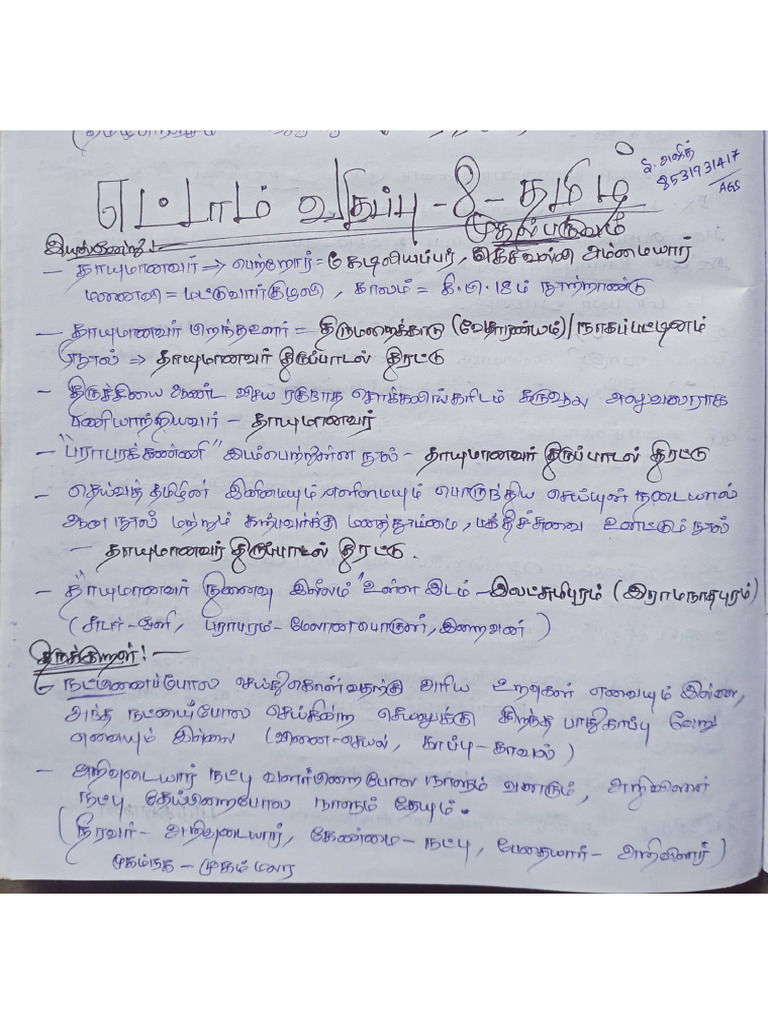 சு. அஜித்
8531931417
AGS
எட்டாம் வகுப்பு - 8 - தமிழ்
முதல்பருவம்
இயல்ஒன்று!
– தாயுமானவர் ⇒ பெற்றோர் = கேடிலியப்பர், கெசவல்லி அம்மையார்
மனைவி = மட்டுவார்குழலி, காலம் = கி.பி. 18ம் நூற்றாண்டு
– தாயுமானவர் பிறந்தஊர் = திருமறைக்காடு (வேதாரண்யம்)/நாகப்பட்டினம்
நூல் ⇒ தாயுமானவர் திருப்பாடல் திரட்டு
– திருச்சியை ஆண்ட விசய ரகுநாத சொக்கலிங்கரிடம் கருவூல அலுவலராக
பணியாற்றியவர் – தாயுமானவர்
– "பராபரக்கண்ணி" இடம்பெற்றுள்ள நூல் – தாயுமானவர் திருப்பாடல் திரட்டு
– தெய்வத் தமிழின் இனிமையும், எளிமையும் பொருந்திய செய்யுள் நடையால்
ஆன நூல் மற்றும் கற்பவர்க்கு மனத்தூய்மை, பக்திச்சுவை ஊட்டும் நூல்
– தாயுமானவர் திருப்பாடல் திரட்டு.
– "தாயுமானவர் நினைவு இல்லம்" உள்ள இடம் – இலட்சுமிபுரம் (இராமநாதபுரம்)
(சுடர் – ஒளி, பராபரம் – மேலான பொருள், இறைவன்)
திருக்குறள்! –
– நட்பினைப்போல செய்துகொள்வதற்கு அரிய உறவுகள் எவையும் இல்லை,
அந்த நட்பைப்போல செய்கின்ற செயலுக்கு சிறந்த பாதுகாப்பு வேறு
எவையும் இல்லை (வினை – செயல், காப்பு – காவல்)
– அறிவுடையார் நட்பு வளர்பிறைபோல நாளும் வளரும், அறிவிலார்
நட்பு தேய்பிறைபோல நாளும் தேயும்.
(நீரவர் – அறிவுடையார், கேண்மை – நட்பு, பேதையார் – அறிவிலார்)
முகம்நக – முகம் மலர